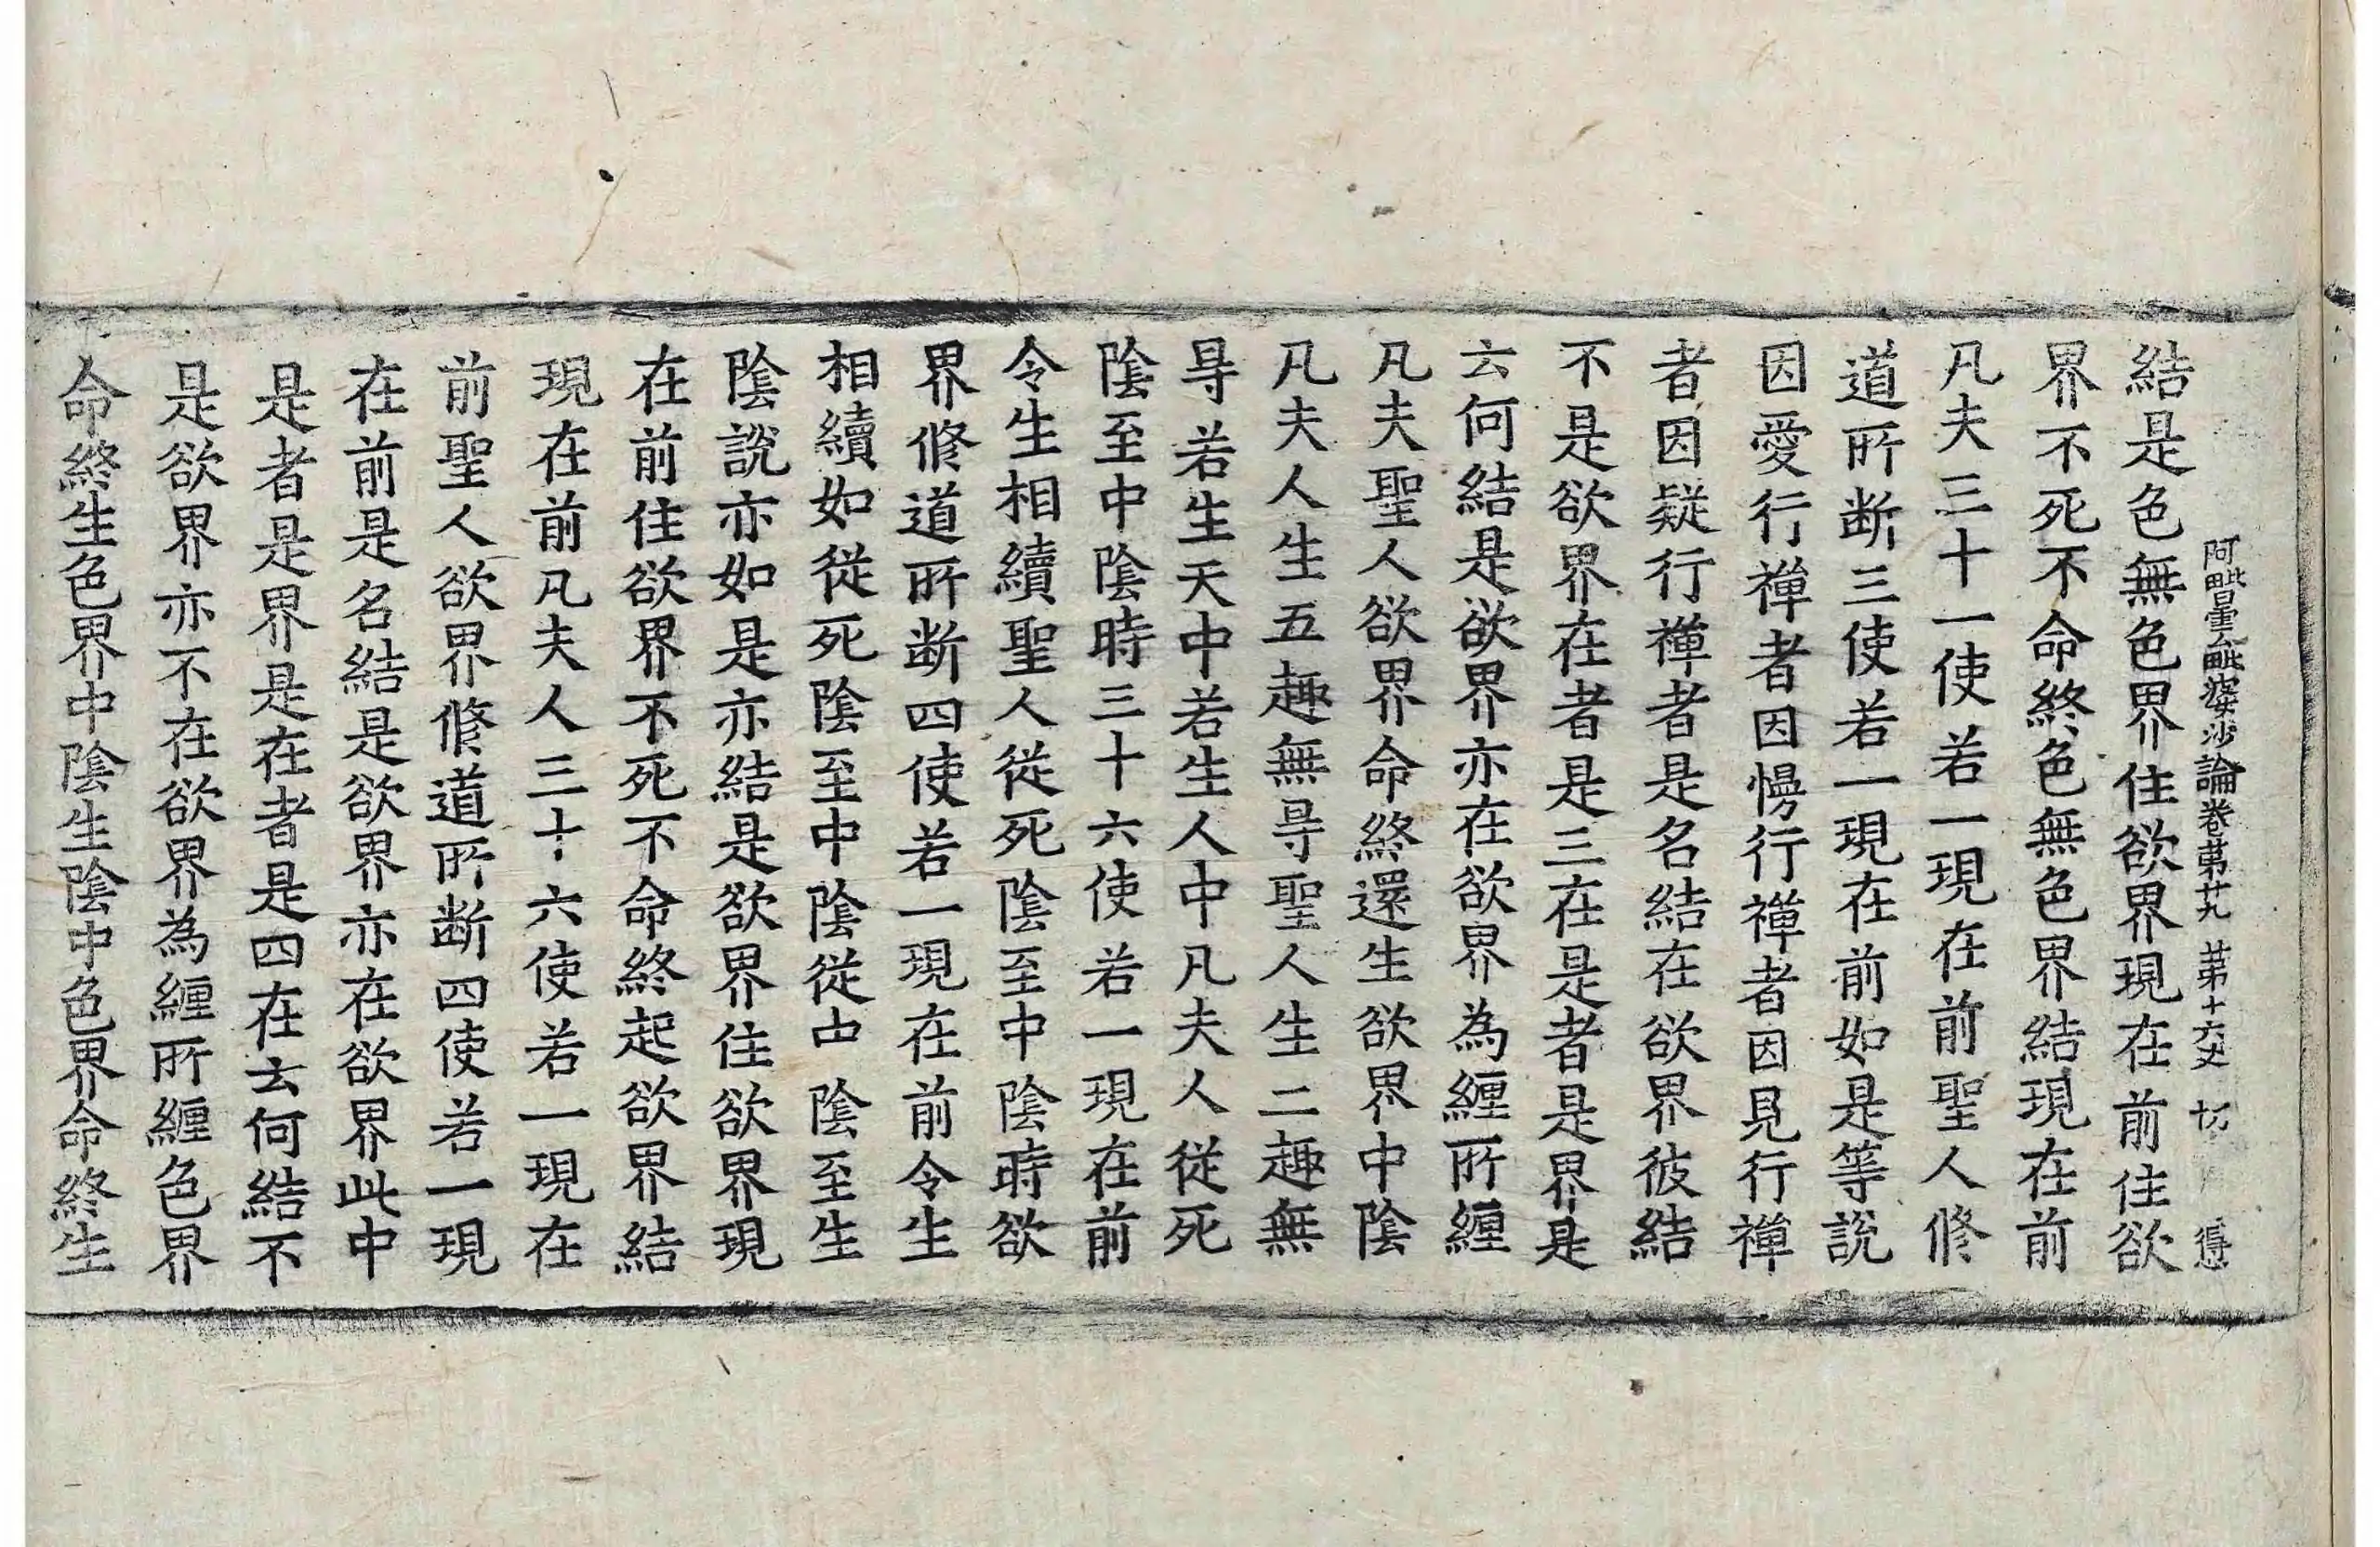 阿毗曇毗婆沙論卷第廿九 第十六丈 切 得
結是色無色界住欲界現在前住欲
界不死不命終色無色界結現在前
凡夫三十一使若一現在前聖人修
道所断三使若一現在前如是等說
因愛行禪者因慢行禪者因見行禪
者因疑行禪者是名結在欲界彼結
不是欲界在者是三在是者是界是
云何結是欲界亦在欲界為纏所纏
凡夫聖人欲界命終還生欲界中陰
凡夫人生五趣無㝵聖人生二趣無
㝵若生天中若生人中凡夫人従死
陰至中陰時三十六使若一現在前
令生相續聖人従死陰至中陰時欲
界修道所断四使若一現在前令生
相續如従死陰至中陰従中陰至生
陰說亦如是亦結是欲界住欲界現
在前住欲界不死不命終起欲界結
現在前凡夫人三十六使若一現在
前聖人欲界修道所断四使若一現
在前是名結是欲界亦在欲界此中
是者是界是在者是四在云何結不
是欲界亦不在欲界為纏所纏色界
命終生色界中陰生陰中色界命終生